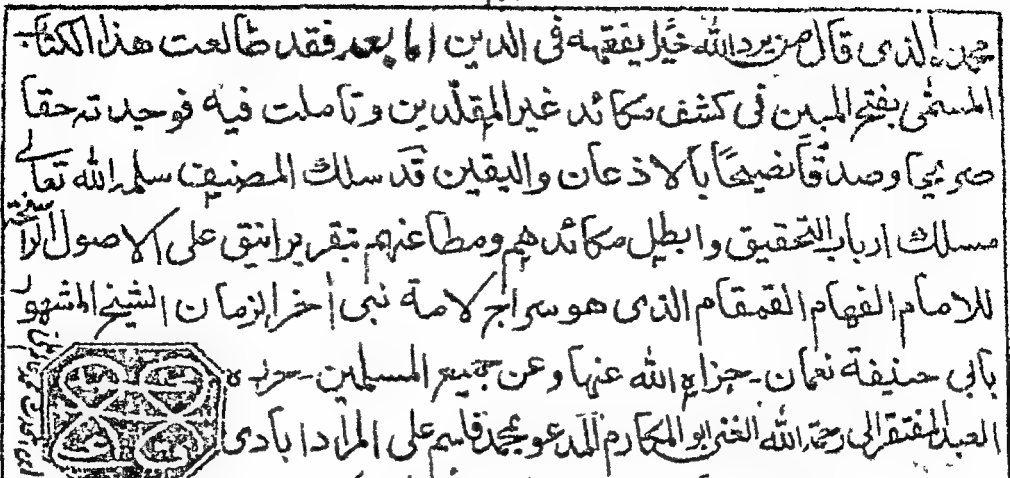 محمدن الذى قال من يرد الله خيرا يفقهه فى الدين اما بعد فقد طالعت هذا الكتاب
المسمى بفتح المبين فى كشف مكائد غير المقلدين وتاملت فيه فوجدته حقا
صريحا وصدقا نضيحا بالاذعان واليقين قد سلك المصنف سلمه الله تعالى
مسلك ارباب التحقيق وابطل مكائدهم ومطاعنهم بتقرير انيق على الاصول الراسخة
للامام الفهام القمقام الذى هو سراج لامة نبى أخر الزمان الشيخ المشهور
بابى حنيفة نعمان جزاه الله عنها وعن جميع المسلمين حرره
العبد المفتقر الى رحمة الله الغنى ابو المكارم المدعو بمحمد قاسم على المرادابادى